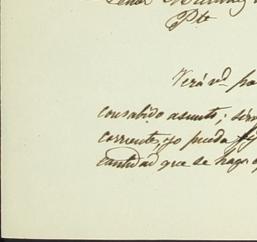 Señor
Pte
Verá vd. po
consabido asunto, sírv
corriente, yo pueda fij
cantidad que se haga